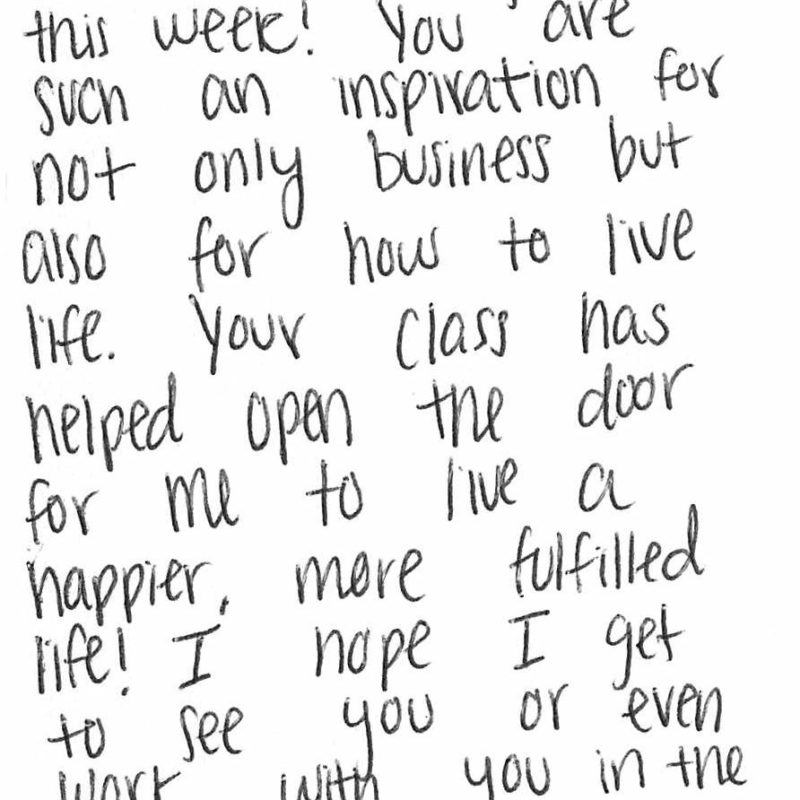 this week! You are
such an inspiration for
not only business but
also for how to live
life. Your class has
helped open the door
for me to live a
happier, more fulfilled
life! I hope I get
to see you or even
work with you in the